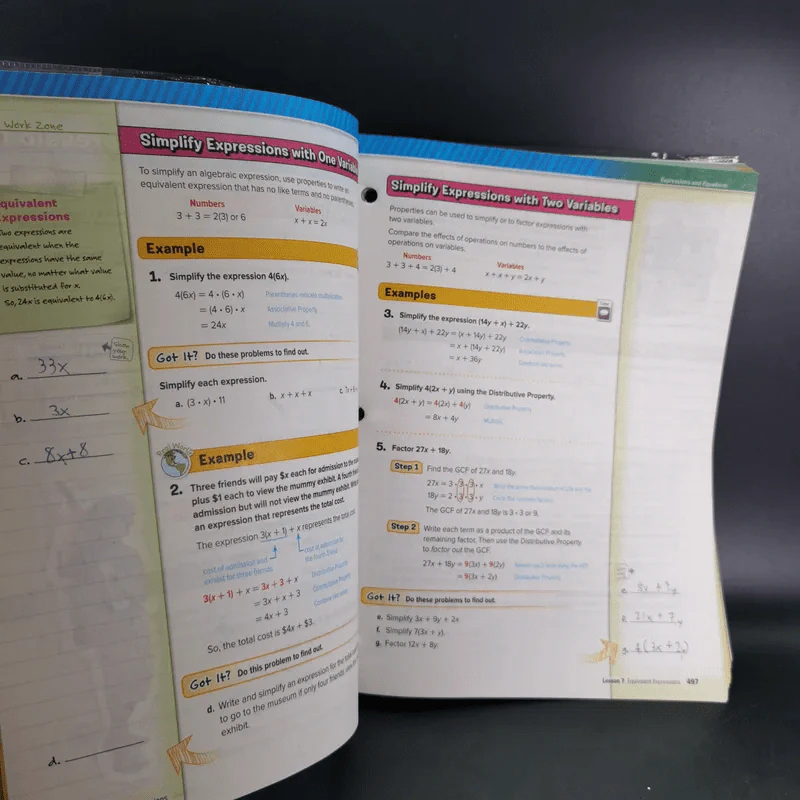 Work Zone
quivalent
xpressions
Two expressions are
equivalent when the
expressions have the same
value, no matter what value
is substituted for x.
So, 24x is equivalent to 4(6x).
Show
your
work.
a. 33x
b. 3x
c. 8x+8
d.
Simplify Expressions with One Variable
To simplify an algebraic expression, use properties to write an
equivalent expression that has no like terms and no parentheses.
Numbers
Variables
3 + 3 = 2(3) or 6
x + x = 2x
Example
1. Simplify the expression 4(6x).
4(6x) = 4 • (6 • x) Parentheses indicate multiplication.
= (4 • 6) • x Associative Property
= 24x Multiply 4 and 6.
Got It? Do these problems to find out.
Simplify each expression.
a. (3 • x) • 11
b. x + x + x
c.
Real World
Example
2. Three friends will pay $x each for admission to the
plus $1 each to view the mummy exhibit. A fourth
admission but will not view the mummy exhibit.
an expression that represents the total cost.
The expression 3(x + 1) + x represents the total cost.
cost of admission and
exhibit for three friends
cost of admission for
the fourth friend
3(x + 1) + x = 3x + 3 + x Distributive Property
= 3x + x + 3 Commutative Property
= 4x + 3 Combine like terms.
So, the total cost is $4x + $3.
Got It? Do this problem to find out.
d. Write and simplify an expression for the total
to go to the museum if only four friends
exhibit.
Expressions and Equations
Simplify Expressions with Two Variables
Properties can be used to simplify or to factor expressions with
two variables.
Compare the effects of operations on numbers to the effects of
operations on variables.
Numbers
Variables
3 + 3 + 4 = 2(3) + 4
x + x + y = 2x + y
Examples
3. Simplify the expression (14y + x) + 22y.
(14y + x) + 22y = (x + 14y) + 22y Commutative Property
= x + (14y + 22y) Associative Property
= x + 36y Combine like terms.
4. Simplify 4(2x + y) using the Distributive Property.
4(2x + y) = 4(2x) + 4(y) Distributive Property
= 8x + 4y Multiply.
5. Factor 27x + 18y.
Step 1 Find the GCF of 27x and 18y.
27x = 3 • 3 • 3 • x
18y = 2 • 3 • 3 • y
The GCF of 27x and 18y is 3 • 3 or 9.
Step 2 Write each term as a product of the GCF and its
remaining factor. Then use the Distributive Property
to factor out the GCF.
27x + 18y = 9(3x) + 9(2y)
= 9(3x + 2y) Distributive Property
Got It? Do these problems to find out.
e. Simplify 3x + 9y + 2x.
f. Simplify 7(3x + y).
g. Factor 12x + 8y.
Lesson 7 Equivalent Expressions 497